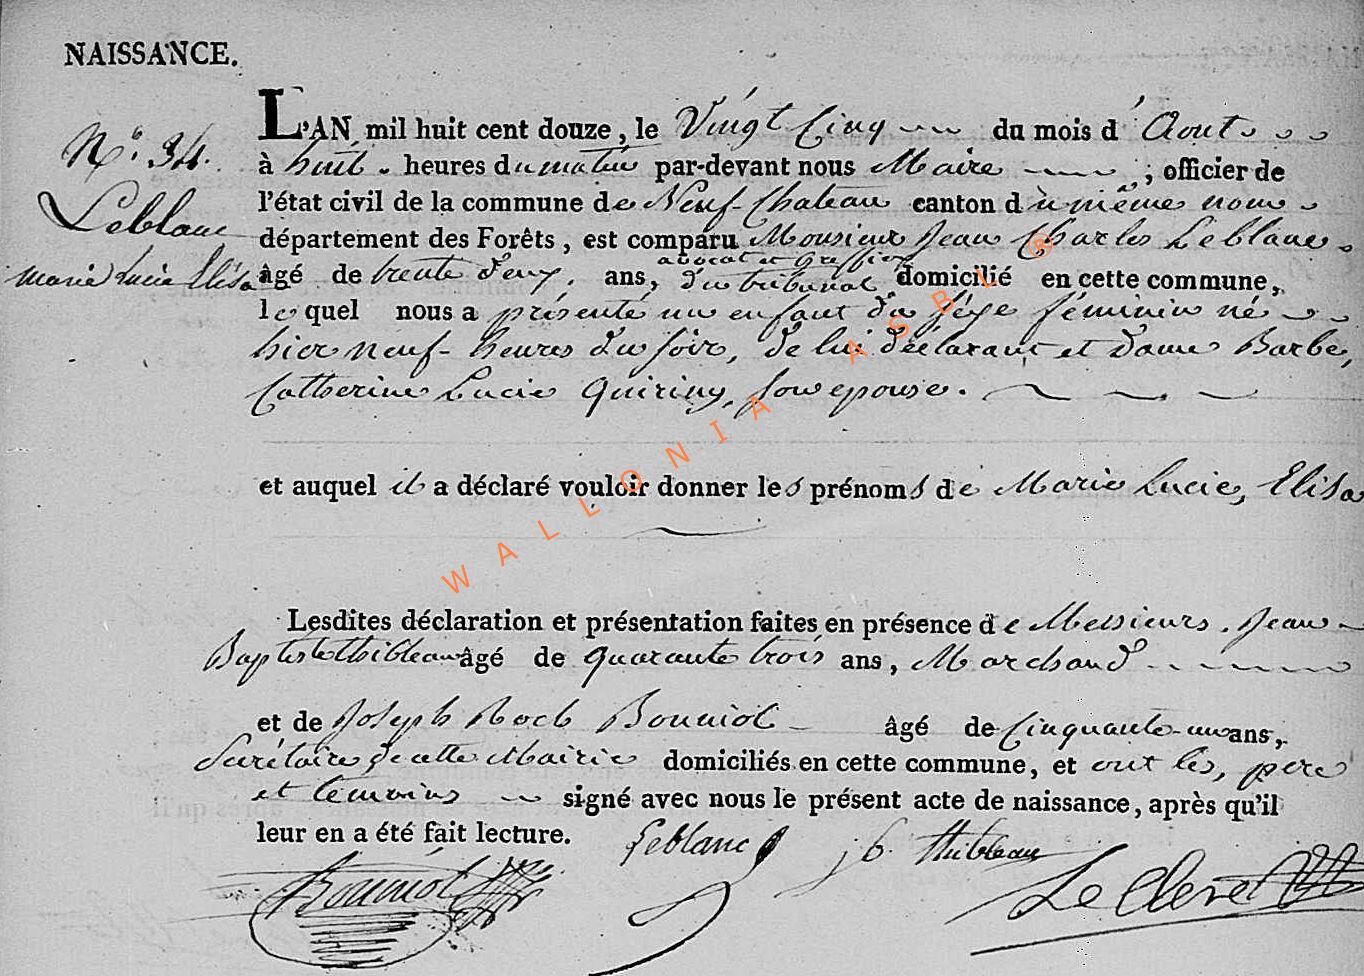 NAISSANCE.
N.° 34.
Leblanc
marie Lucie Elisa
L'AN mil huit cent douze, le Vingt Cinq du mois d'Aout
à huit heures du matin par-devant nous Maire ; officier de
l'état civil de la commune de Neuf-Chateau canton du même nom
département des Forêts, est comparu Monsieur Jean Charles Leblanc
avocat et Greffier
âgé de trente deux ans, du tribunal domicilié en cette commune,
lequel nous a présenté un enfant du séxe féminin né
hier neuf heures du soir, de lui déclarant et dame Barbe,
Catherine Lucie Quiriny, son epouse.
et auquel il a déclaré vouloir donner les prénoms de Marie Lucie, Elisa
Lesdites déclaration et présentation faites en présence de Messieurs. Jean
Baptiste thibleau âgé de quarante trois ans, Marchand
et de Joseph Roch Bouniol âgé de Cinquante un ans,
Secrétaire de cette Mairie domiciliés en cette commune, et ont les, pere
et temoins signé avec nous le présent acte de naissance, après qu'il
leur en a été fait lecture.
Leblanc
j b thibleau
Bouniol
Le Clerc
WALLONIA ASBL ®